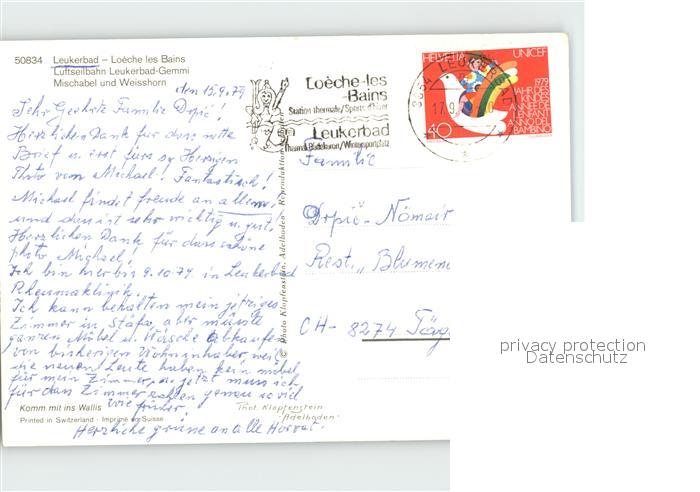 50834 Leukerbad – Loèche les Bains
Luftseilbahn Leukerbad-Gemmi
Mischabel und Weisshorn
den 15.9.79
Sehr Geehrte Familie Dopić!
Herzlichen Dank für das nette
Brief u. erst fürs so Herzigen
Photo vom Michael! Fantastisch!
Michael findet freude an allem,
und das ist sehr wichtig u. gut!
Herzlichen Dank für das schöne
photo Michael!
Ich bin hier bis 9.10.79 in Leukerbad
Rheumaklinik.
Ich kann behalten mein jetziges
Zimmer in Stäfa, aber müsste
ganzen Möbel u. Wäsche abkaufen
von bisherigen Wohninhaber, weil
die neuen Leute haben kein möbel
für mein Zimmer, u. jetzt muss ich
für das Zimmer zahlen genau so viel
wie früher!
Komm mit ins Wallis
Printed in Switzerland - Imprimé en Suisse
Phot Klopfenstein
Adelboden
Herzliche grüsse an alle Horvat.
© Photo Klopfenstein, Adelboden - Reproduktion
Loèche-les
-Bains
Station thermale/Sports d'hiver
Leukerbad
Thermal Badekurort/Wintersportplatz
3954 LEUKERBAD
17.9.
HELVETIA UNICEF
1979
JAHR DES
KINDES
ANNEE DE
L'ENFANT
ANNO DEL
BAMBINO
40
Familie
Dopić-Nömair
Rest. „Blumen
CH - 8274 Täg
privacy protection
Datenschutz